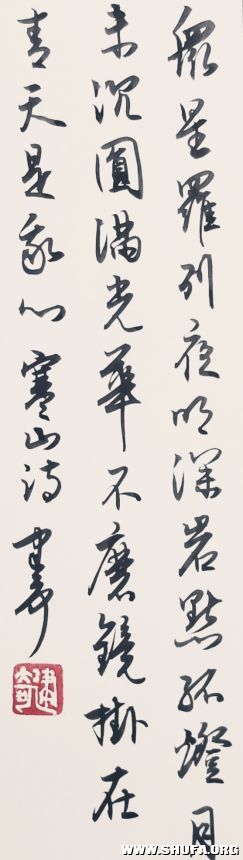 眾星羅列夜明深岩點孤燈月
未沉圓滿光華不磨鏡掛在
青天是我心 寒山詩
WWW.SHUFA.ORG